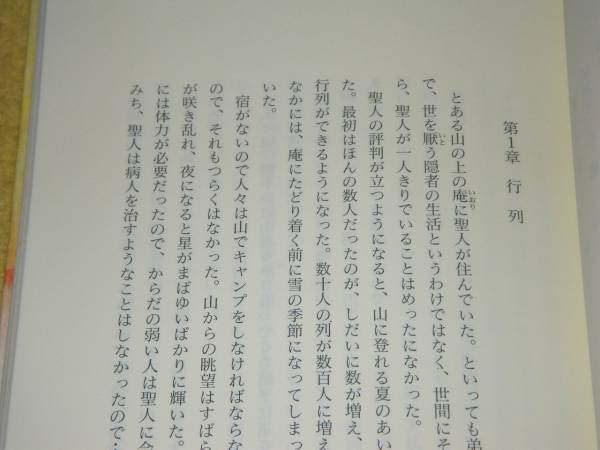 第1章 行 列
とある山の上の庵に聖人が住んでいた。といっても弟
で、世を厭う隠者の生活というわけではなく、世間にそ
ら、聖人が一人きりでいることはめったになかった。
聖人の評判が立つようになると、山に登れる夏のあい
た。最初はほんの数人だったのが、しだいに数が増え、
行列ができるようになった。数十人の列が数百人に増え
なかには、庵にたどり着く前に雪の季節になってしまっ
いた。
宿がないので人々は山でキャンプをしなければならな
ので、それもつらくはなかった。山からの眺望はすばら
が咲き乱れ、夜になると星がまばゆいばかりに輝いた。
には体力が必要だったので、からだの弱い人は聖人に会
みち、聖人は病人を治すようなことはしなかったので…